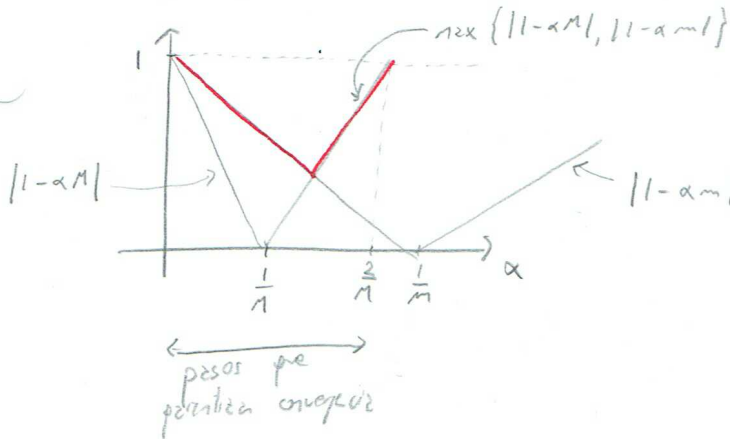 max {|1-αM|, |1-αm|}
1
|1-αM|
|1-αm|
1/M
2/M
1/m
α
pasos que
garantizan convergencia